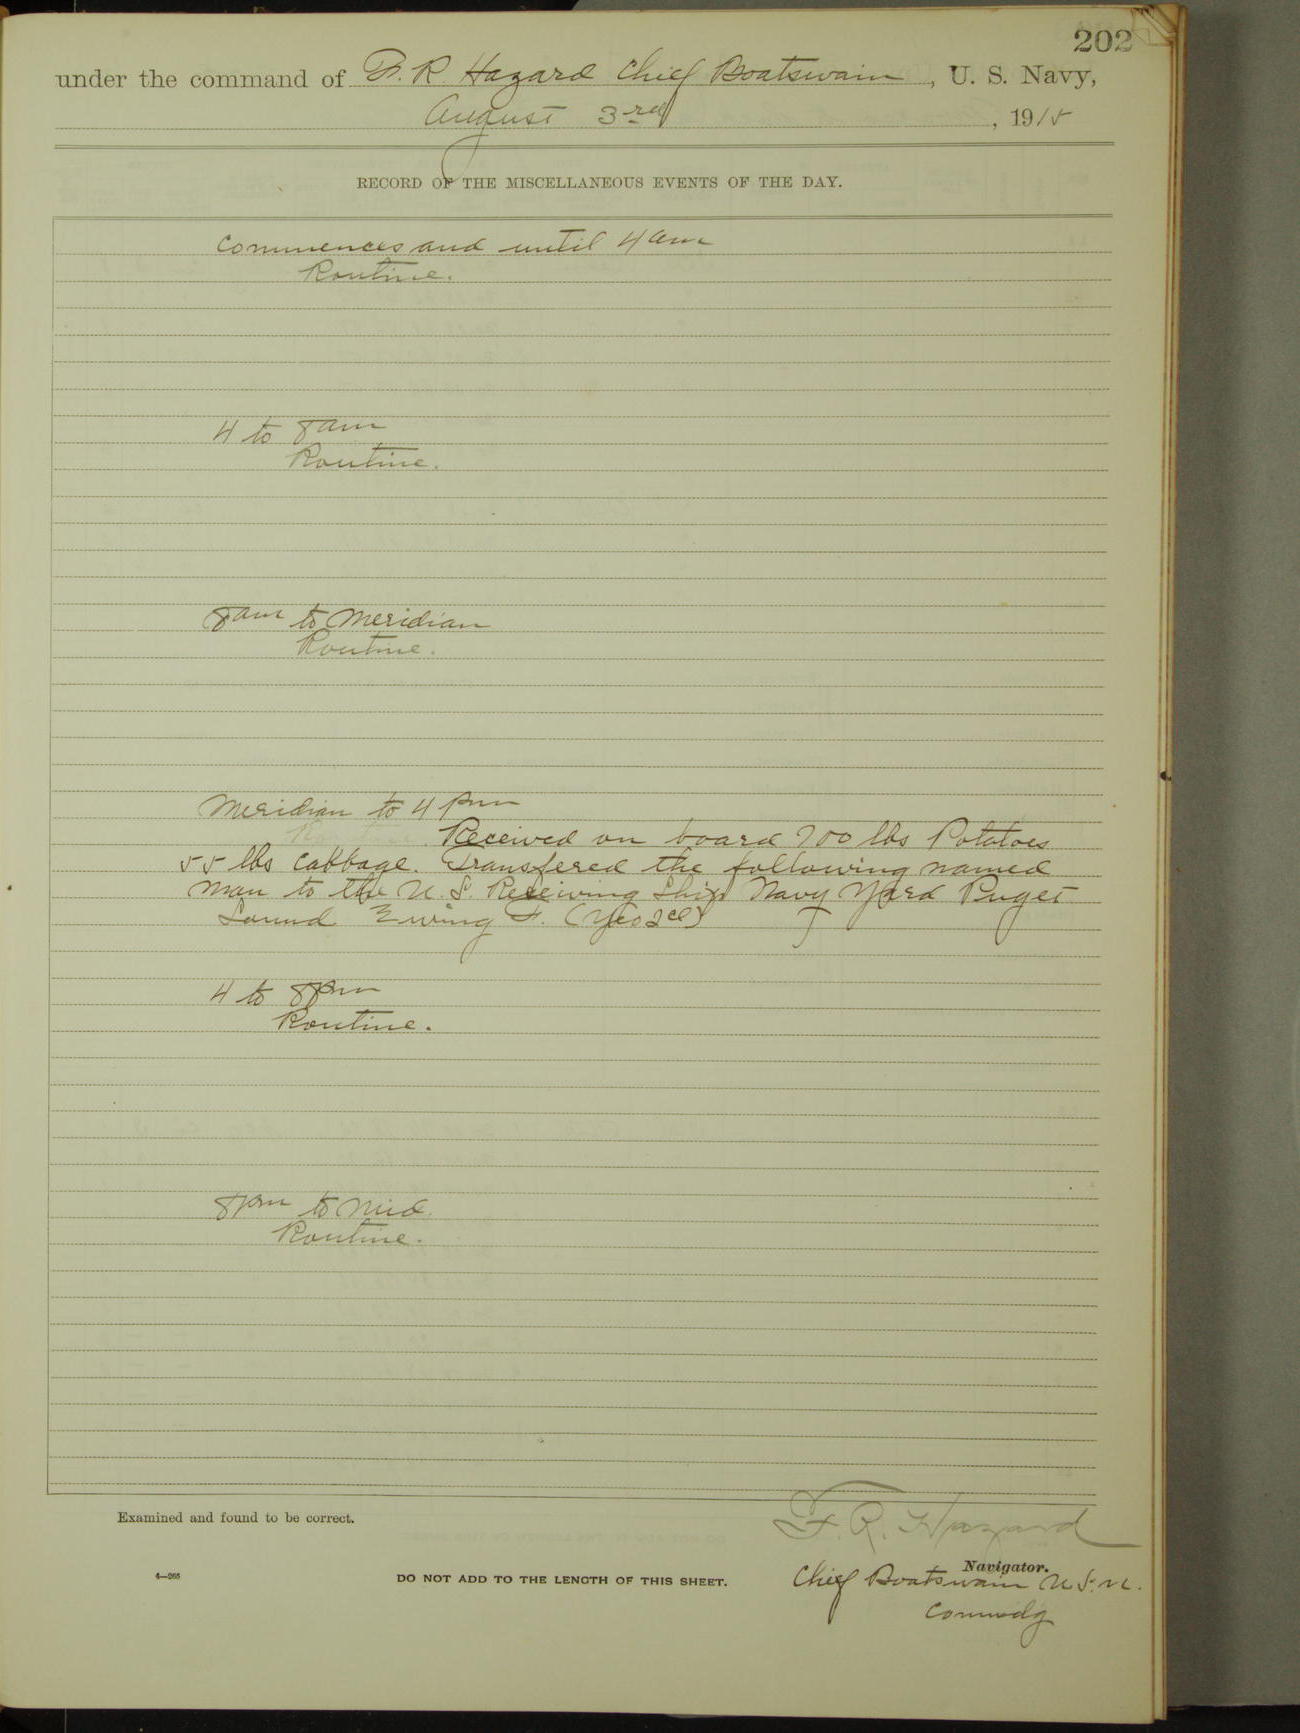 202
under the command of F. R. Hazard Chief Boatswain, U. S. Navy,
August 3rd, 1915
RECORD OF THE MISCELLANEOUS EVENTS OF THE DAY.
Commences and until 4 am
Routine.
4 to 8 am
Routine.
8 am to Meridian
Routine.
Meridian to 4 pm
Received on board 700 lbs Potatoes
55 lbs Cabbage. Transfered the following named
man to the U. S. Receiving Ship Navy Yard Puget
Sound Ewing F. (Yeo 2cl)
4 to 8 pm
Routine.
8 pm to Mid.
Routine.
Examined and found to be correct.
F. R. Hazard
Navigator.
Chief Boatswain U.S.N.
Commdg
DO NOT ADD TO THE LENGTH OF THIS SHEET.